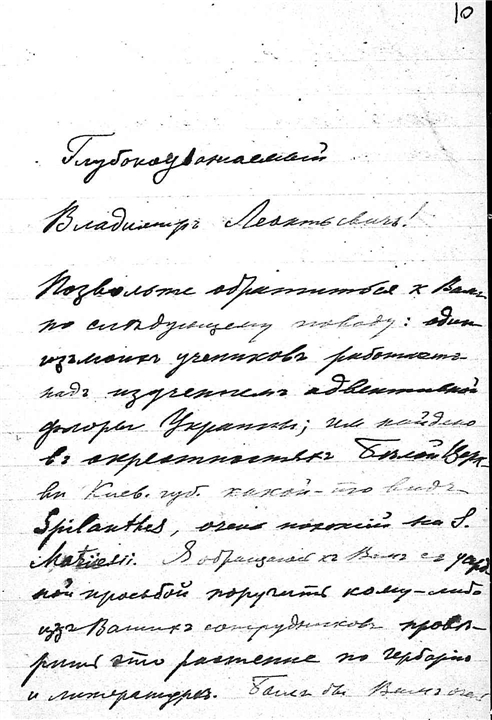 10
Глубокоуважаемый
Владимiръ Леонтьевичъ!
Позвольте обратиться к Вам
по слѣдующему поводу: один
изъ моихъ учениковъ работаетъ
надъ изученiемъ адвентивной
флоры Украины; им найдено
въ окрестностяхъ Бѣлой Церк-
ви Киев. губ. какой-то видъ
Spilanthes, очень похожiй на S.
Я обращаюсь къ Вамъ съ усерд
ной просьбой поручить кому-либо
изъ Вашихъ сотрудниковъ провѣ-
рить это растенiе по гербарiю
и литературѣ. Былъ бы Вамъ очень